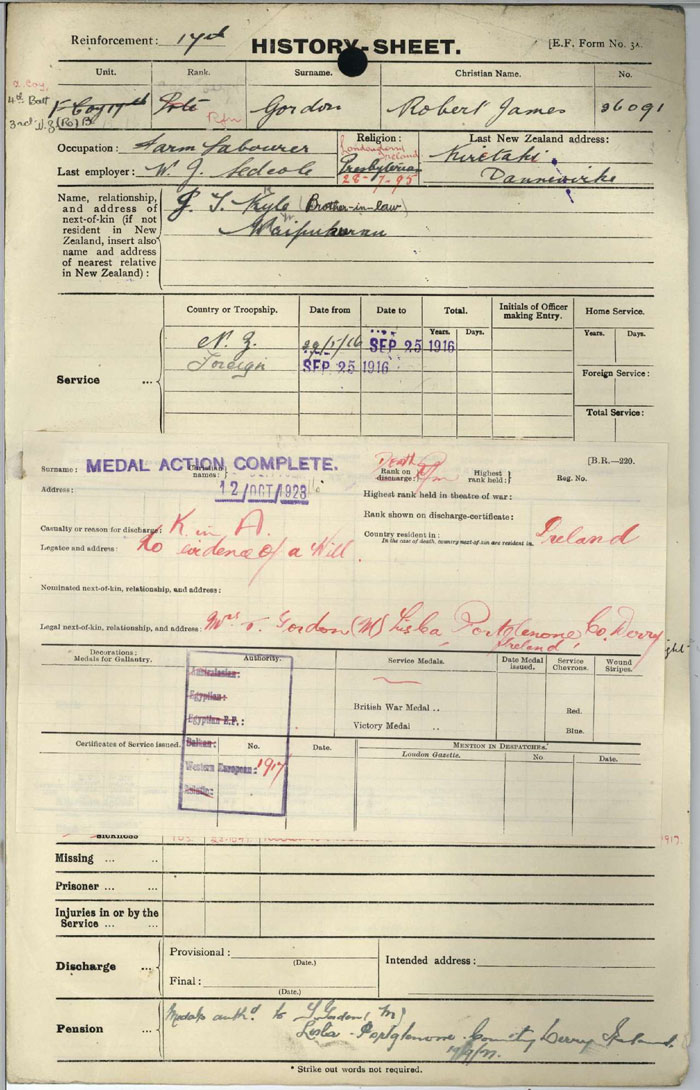 Reinforcement: 17th
HISTORY-SHEET.
[E.F. Form No. 3A.
Unit. Rank. Surname. Christian Name. No.
4th Batt F Coy 17th Pte Rfn Gordon Robert James 26091
3rd N.Z.(R) B
Occupation: Farm Labourer
Religion: Londonderry Ireland Presbyterian 28-7-95
Last New Zealand address:
Kiritaki
Dannevirke
Last employer: W. J. Sedcole
Name, relationship,
and address of
next-of-kin (if not
resident in New
Zealand, insert also
name and address
of nearest relative
in New Zealand):
Kyle (Brother-in-law)
Waipukurau
Country or Troopship. Date from Date to Total. Initials of Officer making Entry. Home Service.
Years. Days. Years. Days.
N.Z. /16 SEP 25 1916
Foreign SEP 25 1916
Service ...
Foreign Service:
Total Service:
[B.R.—220.
Surname: MEDAL ACTION COMPLETE.
names:
12/OCT/1923
Death
Rank on discharge: Rfn
Highest rank held:
Reg. No.
Address:
Highest rank held in theatre of war:
Rank shown on discharge-certificate:
Casualty or reason for discharge: K. in A.
Country resident in: Ireland
In the case of death, country next-of-kin are resident in.
Legatee and address: No evidence of a Will.
Nominated next-of-kin, relationship, and address:
Legal next-of-kin, relationship, and address: Mrs Gordon (M) Lisla, Portglenone, Co. Derry
Ireland
Decorations: Medals for Gallantry. Authority. Service Medals. Date Medal issued. Service Chevrons. Wound Stripes.
Australasian:
Egyptian:
Egyptian E.F.:
Balkan:
Western European: 1917
Asiatic:
British War Medal .. Red.
Victory Medal .. Blue.
Certificates of Service issued. No. Date.
MENTION IN DESPATCHES.
London Gazette. No Date.
Sickness
1917.
Missing ... ..
Prisoner ... ..
Injuries in or by the
Service ... ..
Discharge ...
Provisional:
(Date.)
Final:
(Date.)
Intended address:
Pension ...
Medals auth'd to Gordon (M)
Lisla - Portglenone - County Derry Ireland.
* Strike out words not required.